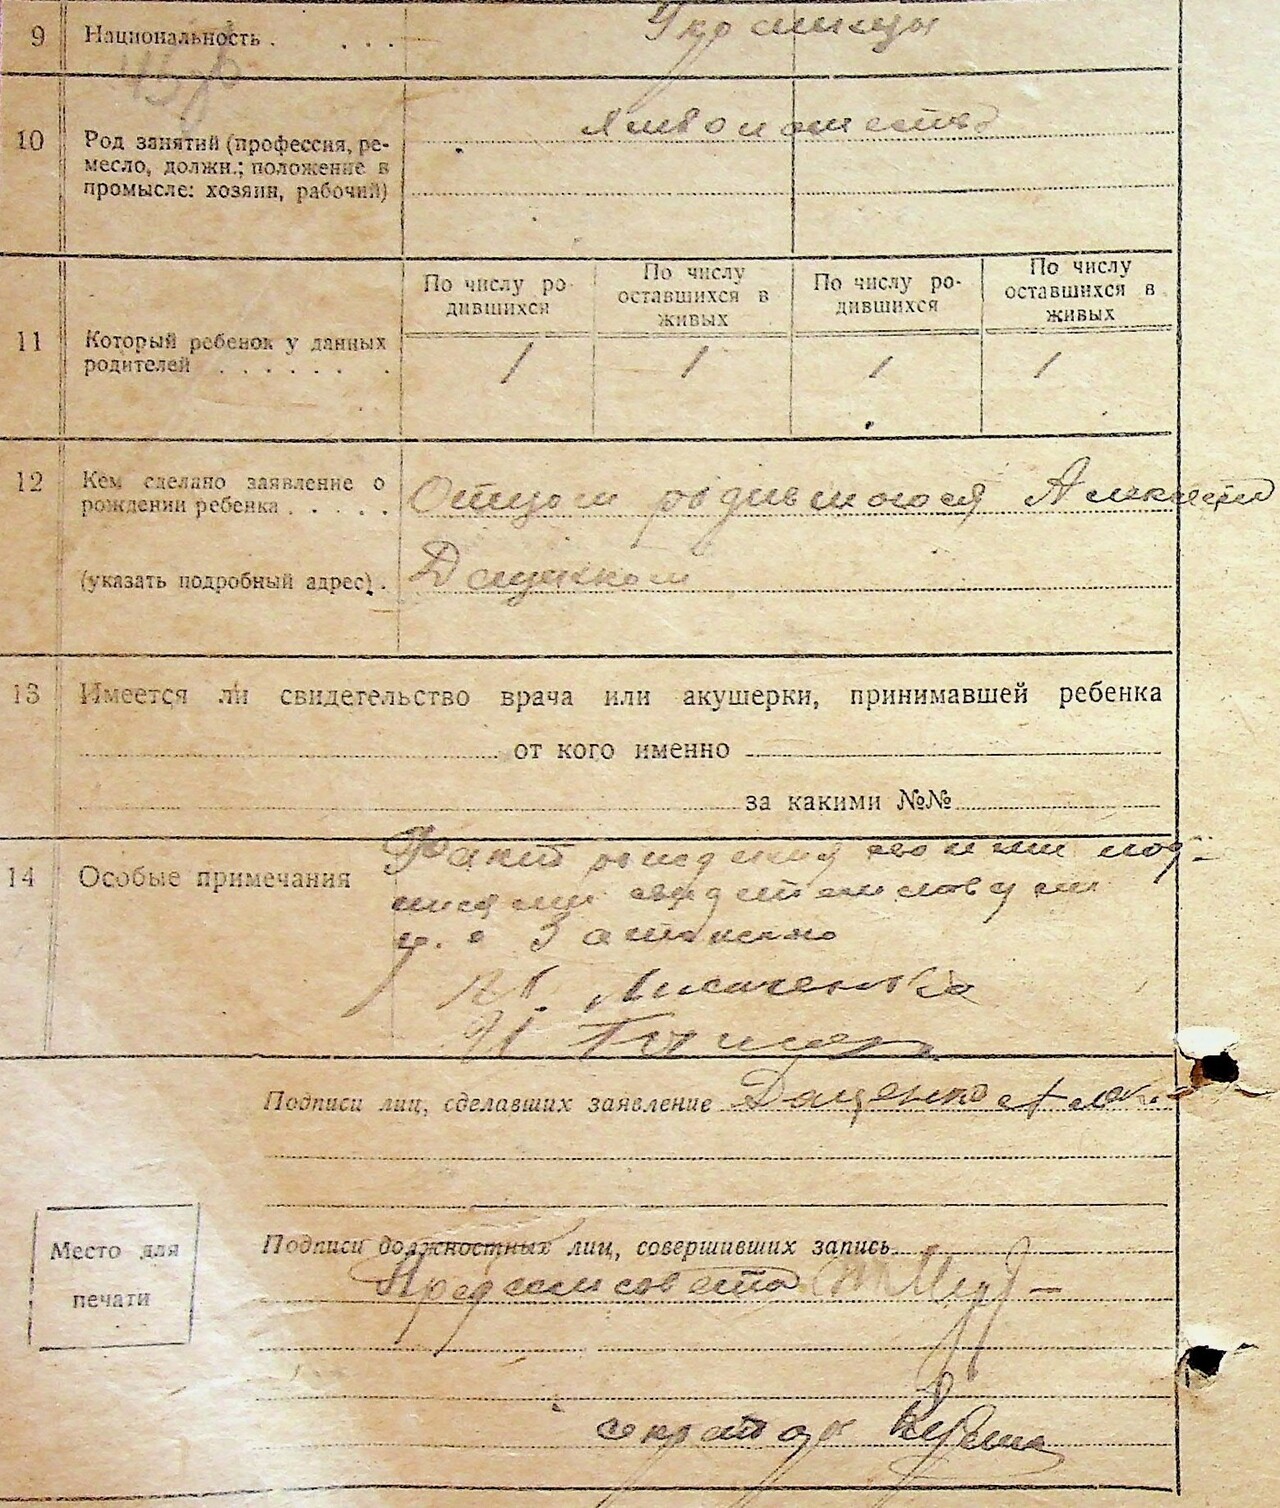 9 Национальность . . . . Украинцы
10 Род занятий (профессия, ре-
месло, должн.; положение в
промысле: хозяин, рабочий)
По числу ро-
дившихся
По числу
оставшихся в
живых
По числу ро-
дившихся
По числу
оставшихся в
живых
11 Который ребенок у данных
родителей . . . . . . . 1 1 1 1
12 Кем сделано заявление о
рождении ребенка . . . . . Отцом родившогося
(указать подробный адрес) . Дащенком
13 Имеется ли свидетельство врача или акушерки, принимавшей ребенка
от кого именно
за какими №№
14 Особые примечания Факт рождения своими под-
писями свидетельствуем
Лисаченко
Подписи лиц, сделавших заявление Дащенко
Место для
печати
Подписи должностных лиц, совершивших запись
Пред сельсовета
секретарь